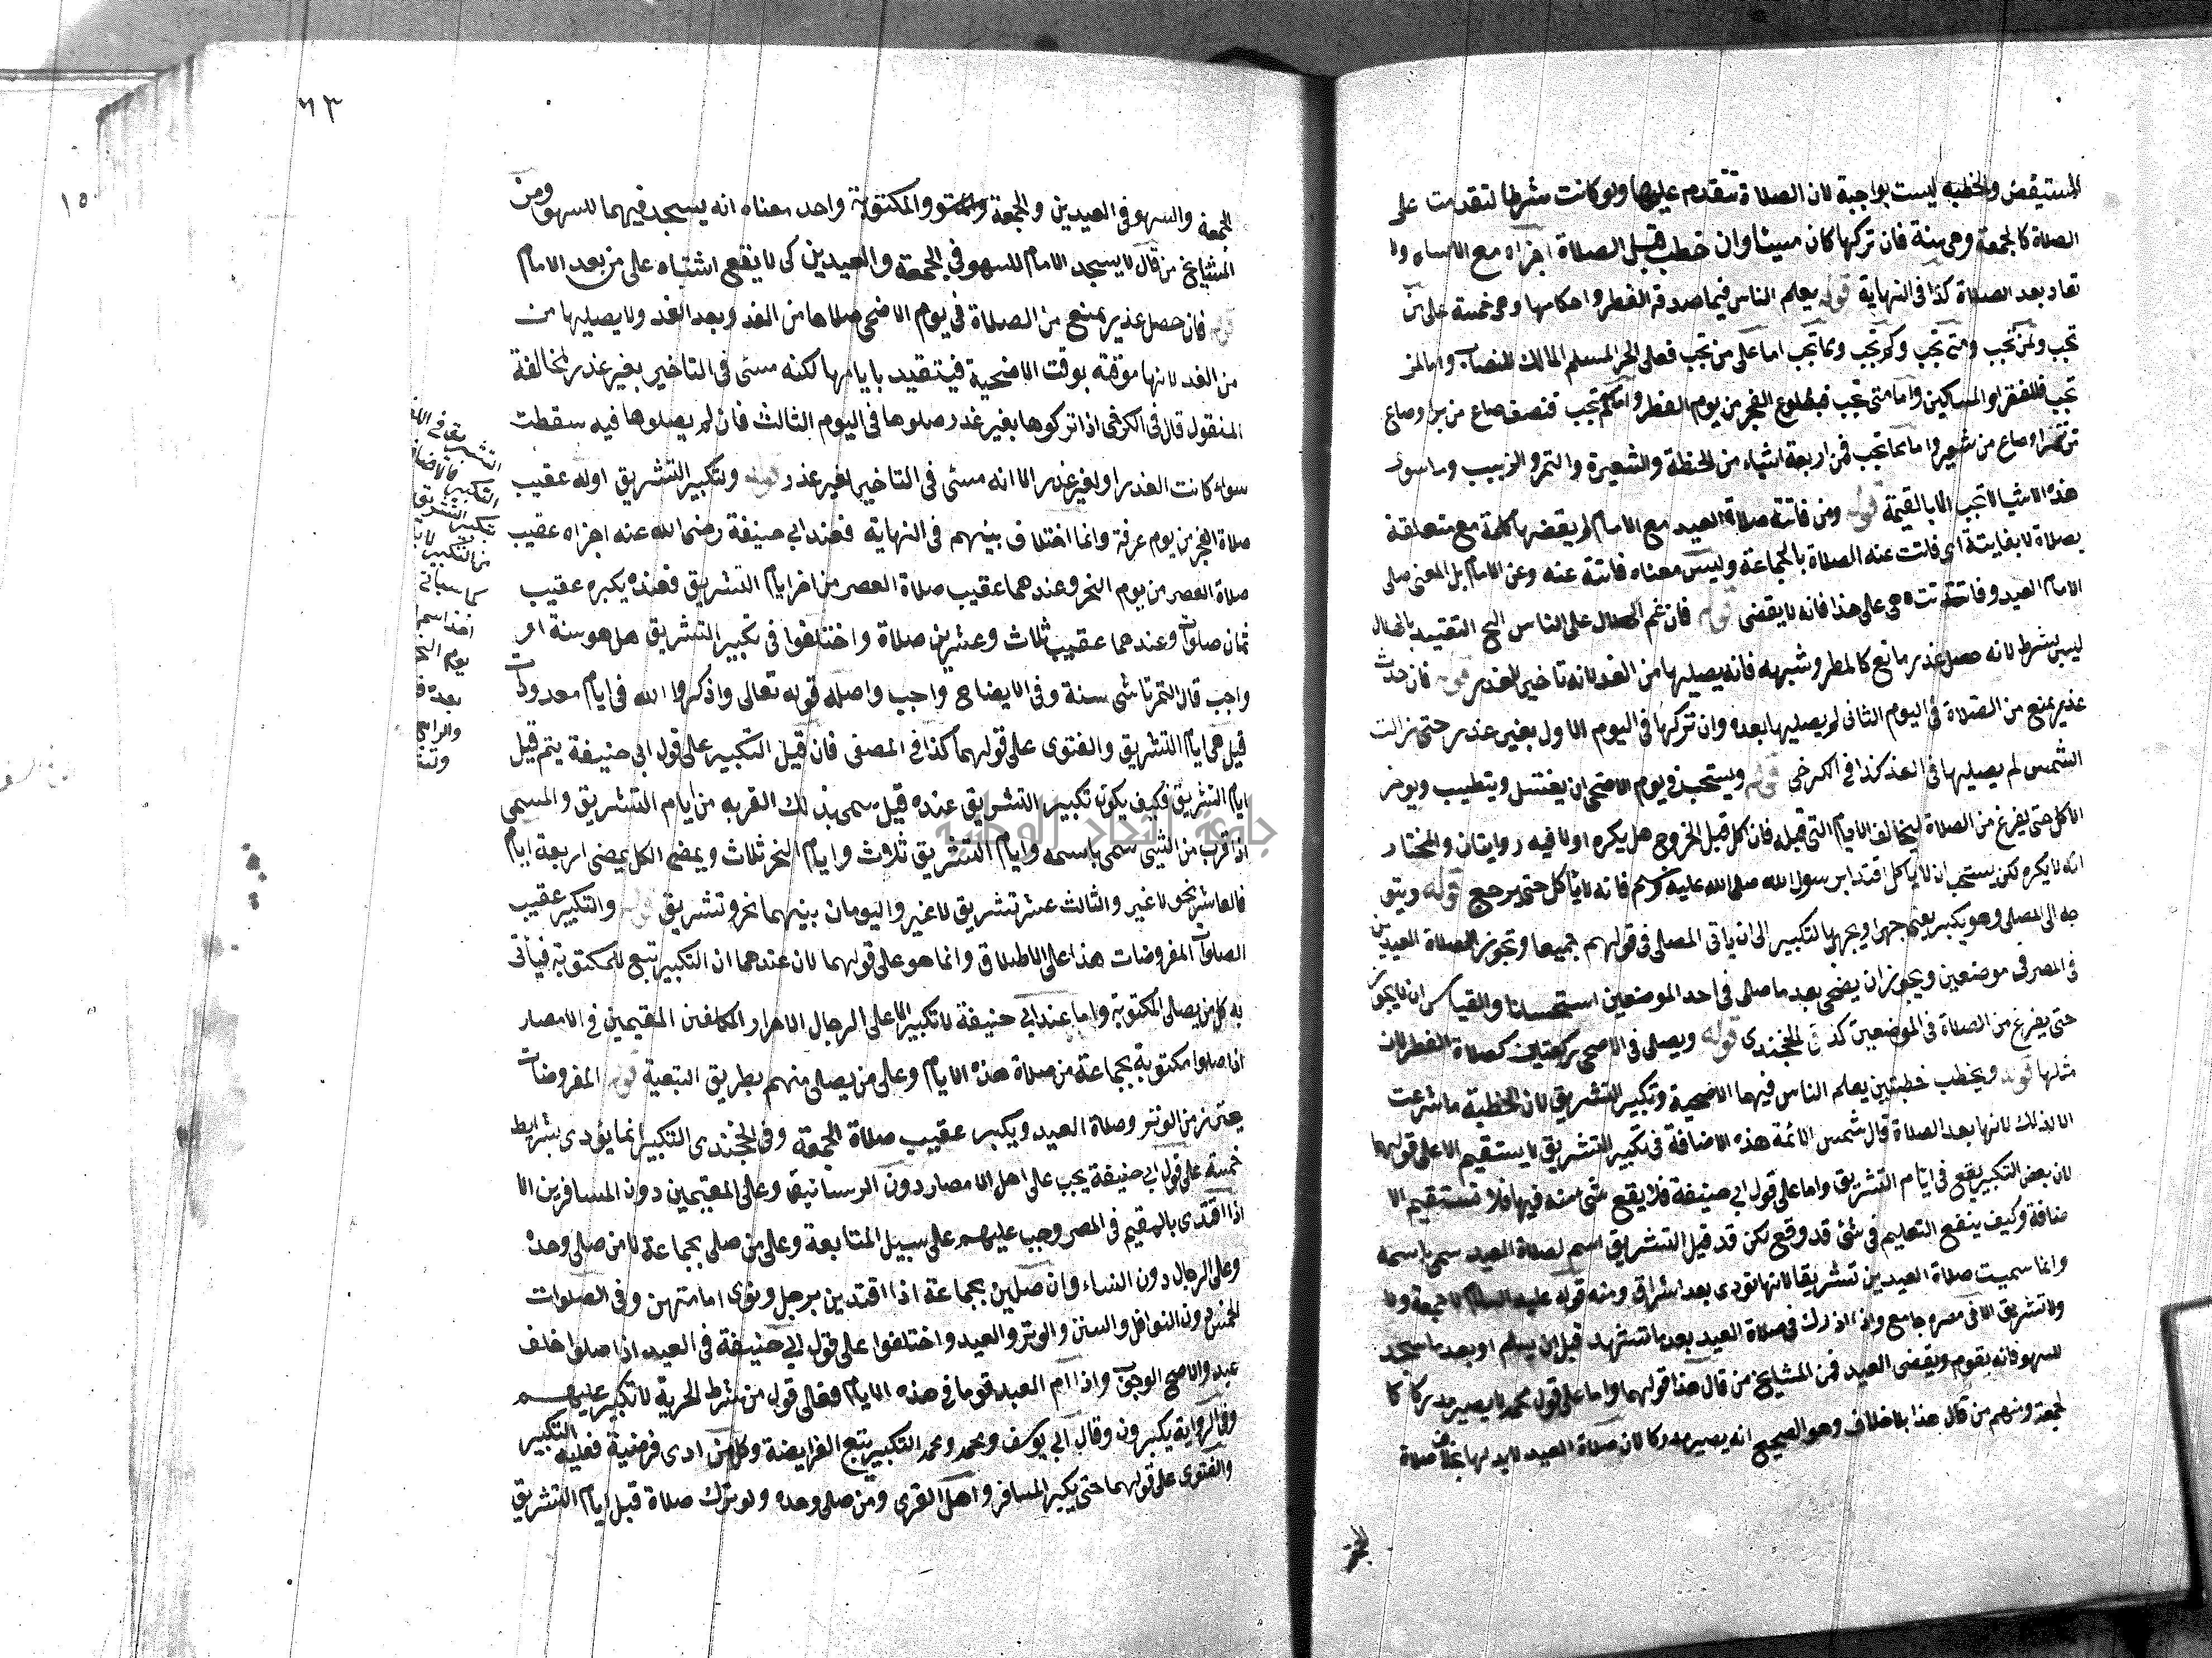 المستيقض والخطبه ليست بواجبة لان الصلاة تتقدم عليها ولو كانت شرطا لتقدمت على
الصلاة كالجمعة وهي سنة فان تركها كان مسيئا وان خطب قبل الصلاة اجزاه مع الاساءة ولا
تعاد بعد الصلاة كذا في النهاية قوله يعلم الناس فيها صدقة الفطر واحكامها وهي خمسة على من
تجب ولمن تجب ومتى تجب وكم تجب ومما تجب اما على من تجب فعلى الحر المسلم المالك للنصاب واما لمن
تجب فللفقراء والمساكين واما متى تجب فبطلوع الفجر من يوم الفطر واما كم تجب فنصف صاع من بر او صاع
من تمر او صاع من شعير واما مما تجب فمن اربعة اشياء من الحنطة والشعيرة والتمر والزبيب وما سوى
هذه الاشيا لا تجب الا بالقيمة قوله ومن فاتته صلاة العيد مع الامام لم يقضها كلمة مع متعلقة
بصلاة لا بفايتة اي فاتت عنه الصلاة بالجماعة وليس معناه فاتتة عنه وعن الامام بل المعنى صلى
الامام العيد وفاتته هي على هذا فانه لا يقضى قوله فان غم الهلال على الناس الخ التقييد بالهلال
ليس بشرط لانه حصل عذر مانع كالمطر وشبهه فانه يصليها من الغد لانه تاخير للعذر قوله فان حدث
عذر يمنع من الصلاة في اليوم الثانى لم يصليها بعده وان تركها في اليوم الاول بغير عذر حتى زالت
الشمس لم يصليها في الغد كذا في الكرخي قوله ويستحب في يوم الاضحى ان يغتسل ويتطيب ويوخر
الاكل حتى يفرغ من الصلاة ليخالف الايام التي قبله فان اكل قبل الخروج هل يكره اولا فيه روايتان والمختار
انه لا يكره لكن يستحب ان لا ياكل اقتدا برسول الله صلى الله عليه وسلم فانه لا ياكل حتى يرجع قوله ويتو
جه الى المصلى وهو يكبر يعني جهرا ويجهر بالتكبير الى ان ياتى المصلى في قولهم جميعا وتجوز الصلاة العيدين
في المصر في موضعين ويجوز ان يضحى بعد ما صلى في احد الموضعين استحسانا والقياس ان لا يجوز
حتى يفرغ من الصلاة في الموضعين كذا في الخجندى قوله ويصلى في الاضحى ركعتين كصلاة الفطر لان
مثلها قوله ويخطب خطبتين يعلم الناس فيها الاضحية وتكبير التشريق لان الخطبة ما شرعت
الا لذلك لانها بعد الصلاة قال شمس الائمة هذه الاضافة في تكبير التشريق لا يستقيم الا على قولهما
لان بعض التكبير يقع في ايام التشريق واما على قول ابي حنيفة فلا يقع شي منه فيها فلا تستقيم الا
ضافة وكيف ينفع التعليم في شئ قد وقع لكن قد قيل التشريق اسم لصلاة العيد سمى باسمه
وانما سميت صلاة العيدين تشريقا لانها تودى بعد اشراق ومنه قوله عليه السلام لا جمعة ولا
ولا تشريق الا في مصر جامع واذا ادرك في صلاة العيد بعد ما تشهد قبل ان يسلم او بعد ما سجد
للسهو فانه يقوم ويقضى العيد فمن المشايخ من قال هذا قولهما واما على قول محمد لا يصير مدركا كا
لجمعة ومنهم من قال هذا بلا خلاف وهو الصحيح انه يصير مدركا لان صلاة العيد لابد لها بخلاف صلاة
٦٣
الجمعة والسهو في العيدين والجمعة والمكتوبة واحد معناه انه يسجد فيهما للسهو ومن
المشايخ من قال لا يسجد الامام للسهو في الجمعة والعيدين كى لا يقع اشتباه على من بعد الامام
قوله فان حصل عذر يمنع من الصلاة في يوم الاضحى صلاها من الغد وبعد الغد ولا يصليها من
من الغد لانها موقتة بوقت الاضحية فيتقيد بايامها لكنه مسئ في التاخير بغير عذر لمخالفة
المنقول قال في الكرخي اذا تركوها بغير عذر صلوها في اليوم الثالث فان لم يصلوها فيه سقطت
سواء كانت العذر او لغير عذر الا انه مسئ في التاخير لغير عذر قوله وتكبير التشريق اوله عقيب
صلاة الفجر من يوم عرفة وانما اختلاف بينهم في النهاية فعند ابي حنيفة رضى الله عنه اجزاه عقيب
صلاة العصر من يوم النحر وعندهما عقيب صلاة العصر من اخر ايام التشريق فعنده يكبره عقيب
ثمان صلوات وعندهما عقيب ثلاث وعشرين صلاة واختلفوا في تكبير التشريق هل هو سنة او
واجب قال التمرتاشى سنة وفي الايضاح واجب واصله قوله تعالى واذكروا الله في ايام معدودات
قيل هي ايام التشريق والفتوى على قولهما كذا في المصفى فان قيل التكبير على قول ابي حنيفة يتم قبل
ايام التشريق فكيف يكون تكبير التشريق عنده قيل سمى بذلك القربه من ايام التشريق والمسمى
اذا قرب من الشى سمى باسمه وايام التشريق ثلاث وايام النحر ثلاث ويمضى الكل يمضى اربعة ايام
فالعاشر نحر لا غير والثالث عشر تشريق لا غير واليومان بينهما نحر وتشريق قوله والتكبير عقيب
الصلوات المفروضات هذا على الاطلاق وانما هو على قولهما لان عندهما ان التكبير تبع للمكتوبة فياتى
به كل من يصلى المكتوبة واما عند ابي حنيفة لا تكبير الا على الرجال الاحرار المكلفين المقيمين في الامصار
اذا صلوا مكتوبة بجماعة من صلاة هذه الايام وعلى من يصلى منهم بطريق التبعية قوله المفروضات
يحترز من الوتر وصلاة العيد ويكبر عقيب صلاة الجمعة وفي الخجندى التكبير انما يؤدى بشرايط
خمسة على قول ابي حنيفة يجب على اهل الامصار دون الرساتيق وعلى المقيمين دون المسافرين الا
اذا اقتدى بالمقيم في المصر وجب عليهم على سبيل المتابعة وعلى من صلى بجماعة لا من صلى وحده
وعلى الرجال دون النساء وان صلين بجماعة اذا اقتدين برجل ونوى امامتهن وفي الصلوات
الخمس دون النوافل والسنن والوتر والعيد واختلفوا على قول ابي حنيفة في العبيد اذا صلوا خلف
عبد والاصح الوجوب واذا ام العبد قوما في هذه الايام فعلى قول من شرط الحرية لا تكبير عليهم
وفي الرواية يكبرون وقال ابي يوسف ومحمد ومحمد التكبير يتبع الفرايضة وكل من ادى فرضية فعليه التكبير
والفتوى على قولهما حتى يكبر المسافر واهل القرى ومن صلى وحده ولو ترك صلاة قبل ايام التشريق
التكبير
تكبير التشريق
من التكبير
كما سياتى
يوم النحر
بعده
جامعة النجاح الوطنية